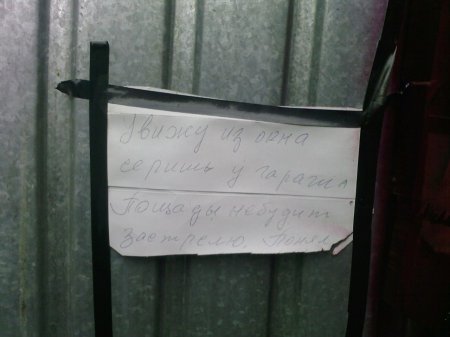 Увижу из окна
серишь у гаража
Пощады небудит
Застрелю. Понял